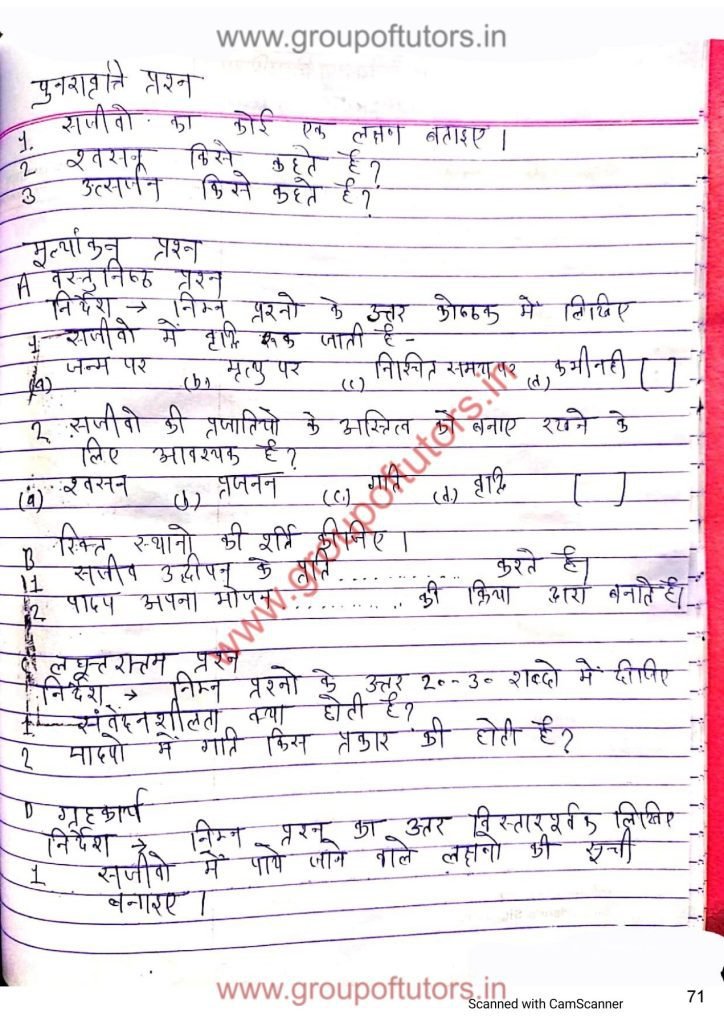 www.groupoftutors.in
पुनरावृत्ति प्रश्न
1. सजीवो का कोई एक लक्षण बताइए।
2 श्वसन किसे कहते है?
3 उत्सर्जन किसे कहते है?
मूल्यांकन प्रश्न
A वस्तुनिष्ठ प्रश्न
निर्देश → निम्न प्रश्नो के उत्तर कोष्ठक में लिखिए
1 सजीवो में वृद्धि रूक जाती है -
(a) जन्म पर (b) मृत्यु पर (c) निश्चित समय पर (d) कभी नही [ ]
2 सजीवो की प्रजातियो के अस्तित्व को बनाए रखने के
लिए आवश्यक है?
(a) श्वसन (b) प्रजनन (c) गति (d) वृद्धि [ ]
B रिक्त स्थानो की पूर्ति कीजिए।
1 सजीव उद्दीपन के प्रति ............ करते है।
2 पादप अपना भोजन ............ की क्रिया द्वारा बनाते है।
C लघुत्तरात्तम प्रश्न
निर्देश → निम्न प्रश्नो के उत्तर 20-30 शब्दो में दीजिए
1 संवेदनशीलता क्या होती है?
2 पादपो में गति किस प्रकार की होती है?
D ग्रहकार्य
निर्देश → निम्न प्रश्न का उत्तर विस्तारपूर्वक लिखिए
1 सजीवो में पाये जाने वाले लक्षनो की सूची
बनाइए।
www.groupoftutors.in
www.groupoftutors.in
Scanned with CamScanner
71